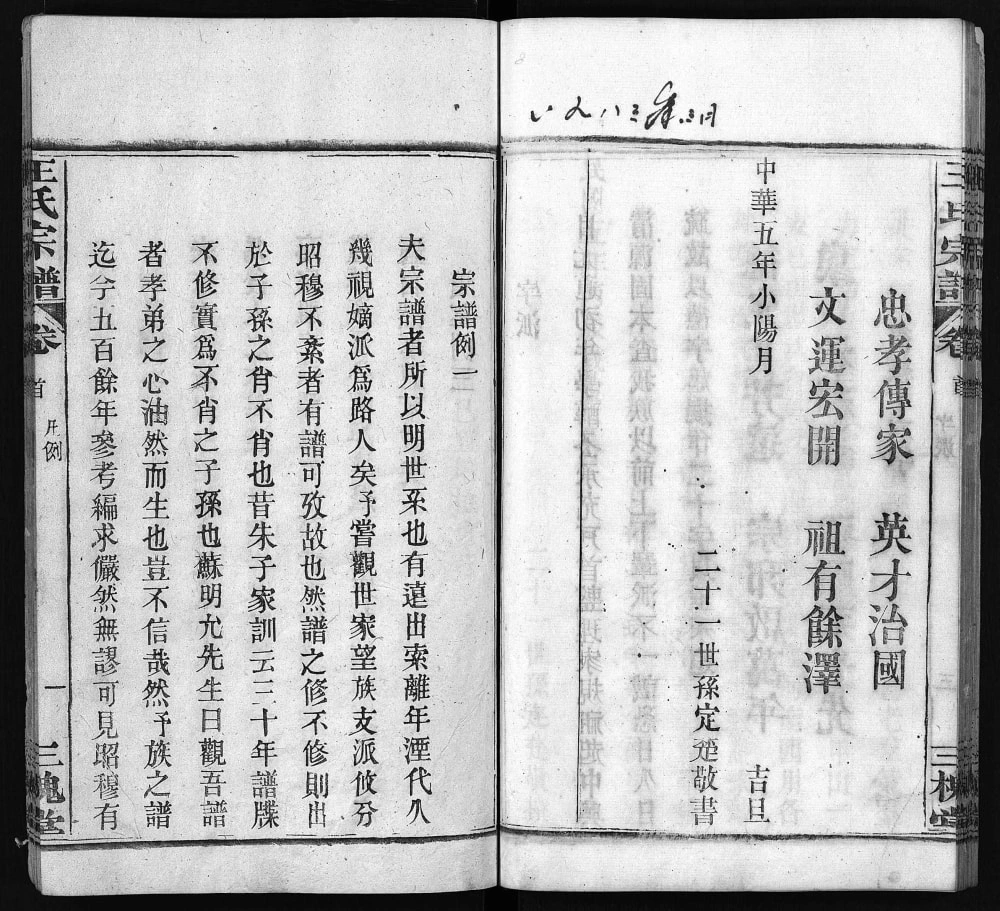 一九八三年三月
王氏宗譜 卷首 三槐堂
忠孝傳家 英才治國
文運宏開 祖有餘澤
中華五年小陽月 吉旦
二十一世孫定楚敬書
宗譜例一
夫宗譜者所以明世系也有遠出索離年湮代久
幾視嫡派爲路人矣予嘗觀世家望族支派攸分
昭穆不紊者有譜可攷故也然譜之修不修則出
於子孫之肖不肖也昔朱子家訓云三十年譜牒
不修實爲不肖之子孫也蘇明允先生曰觀吾譜
者孝弟之心油然而生也豈不信哉然予族之譜
迄今五百餘年參考編求儼然無謬可見昭穆有
王氏宗譜 卷首 凡例 一 三槐堂